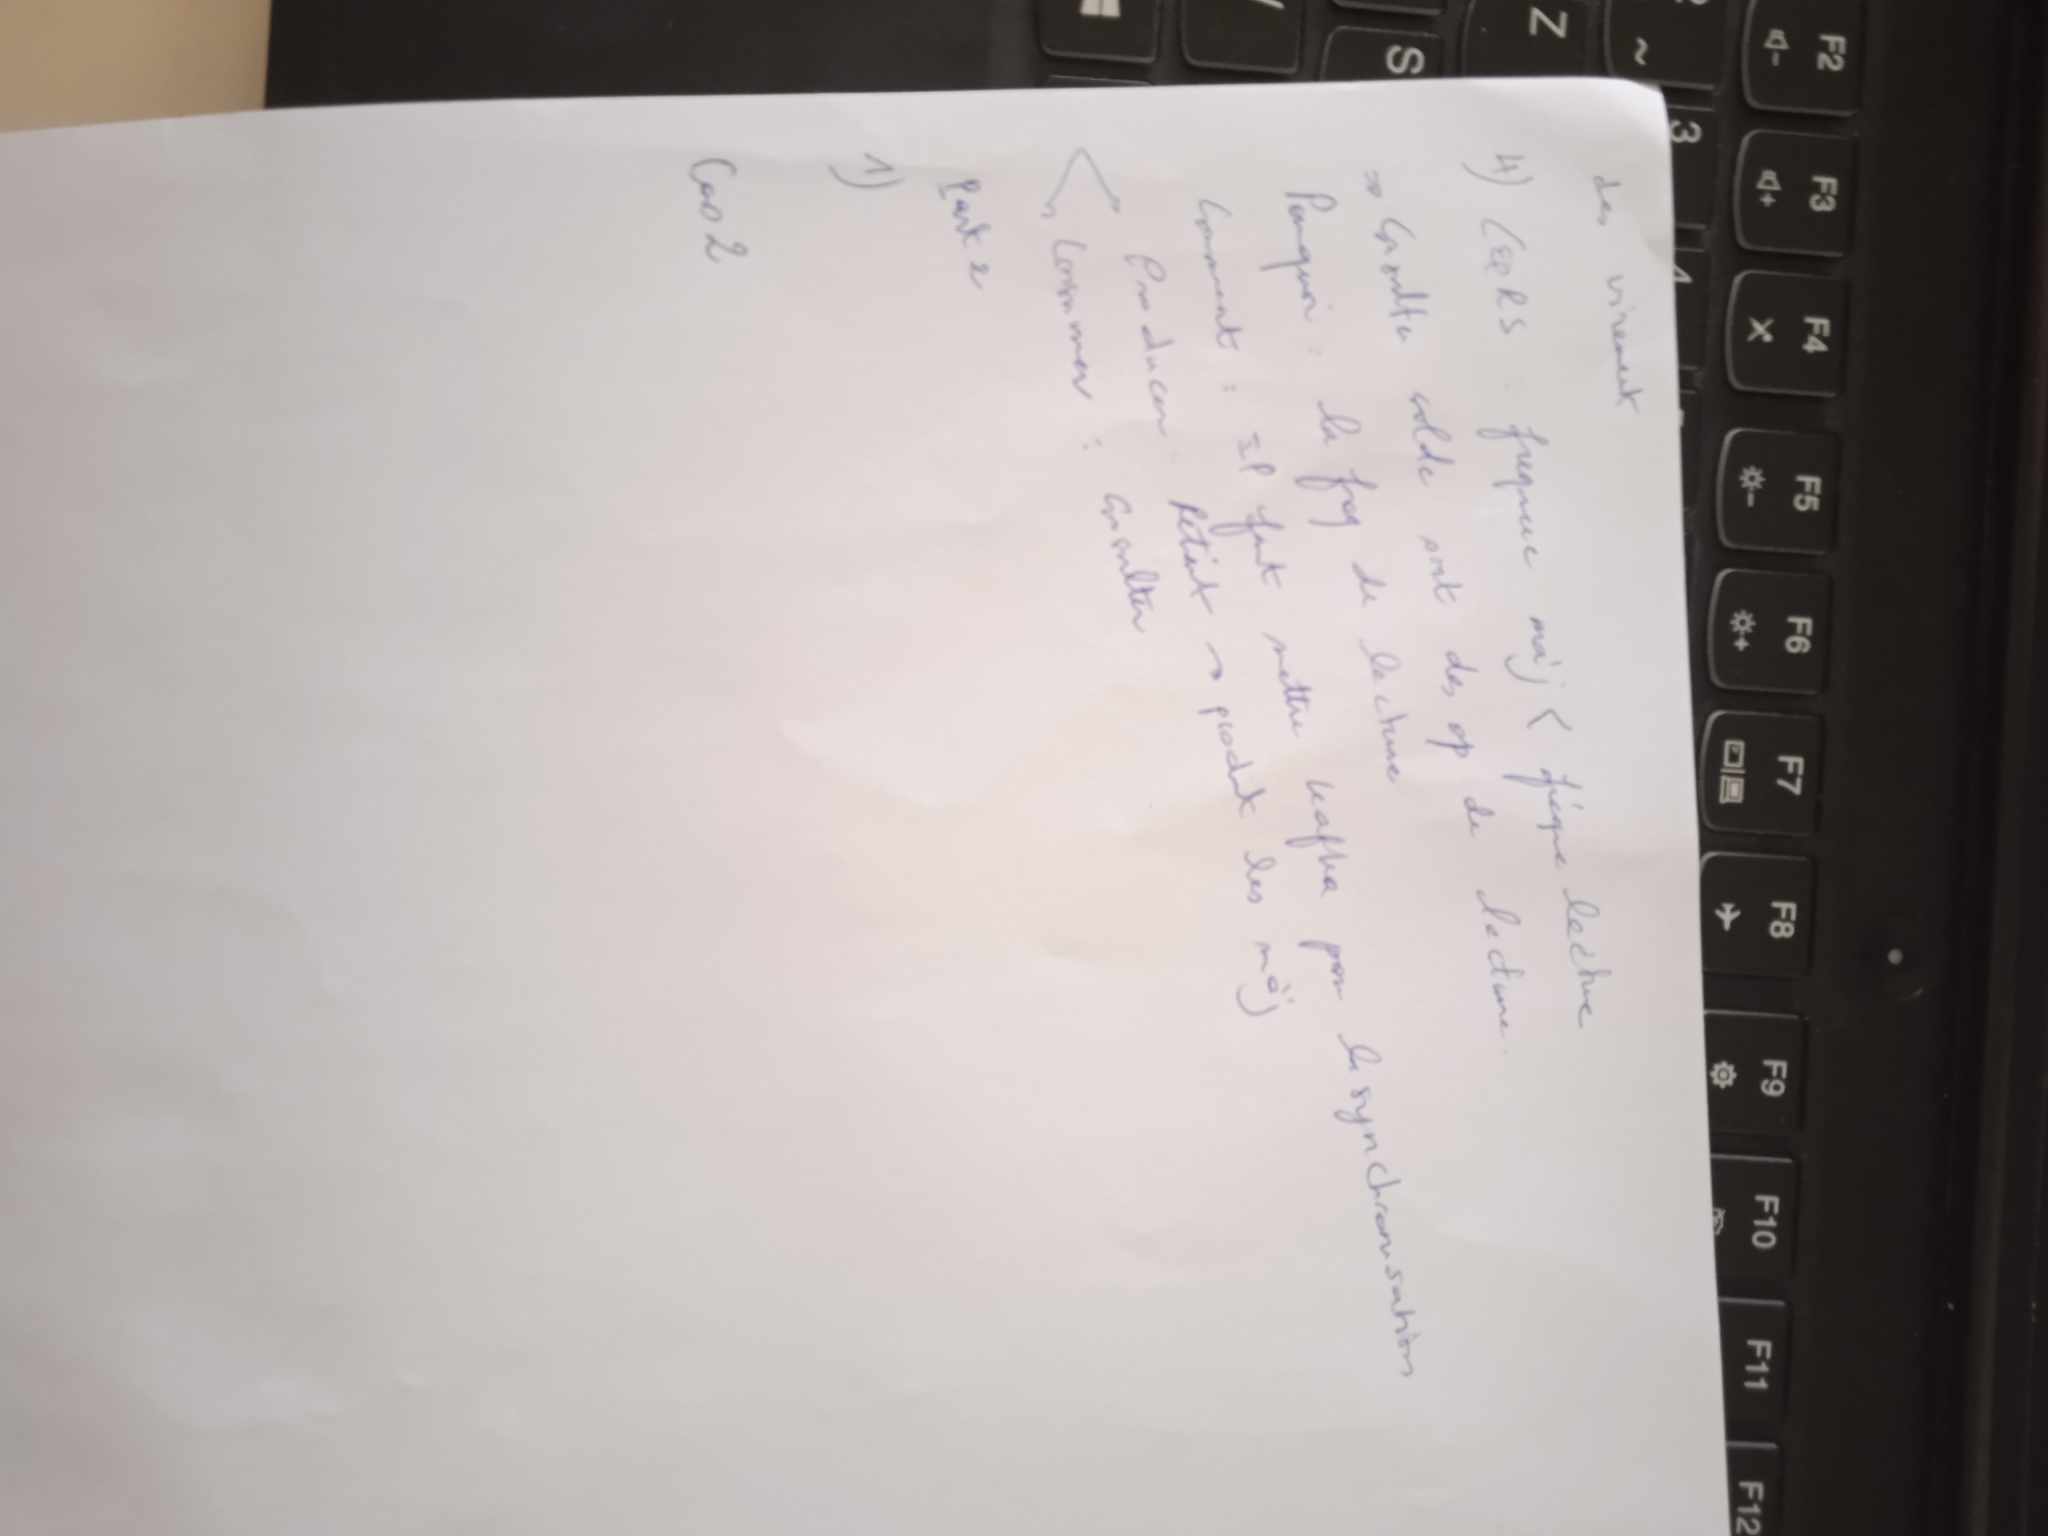 F2 F3 F4 F5 F6 F7 F8 F9 F10 F11 F12
3 4
~
Z
S
des virement
4) CQRS : frequence màj < fréque lecture
⇒ Consulter solde sont des op de lecture.
Pourquoi : la freq de lecture
Comment : Il faut mettre kafka pour la synchronisation
Producer : Retrait → produit les màj
Consumer : Consulter
Part 2
1)
Cas 2